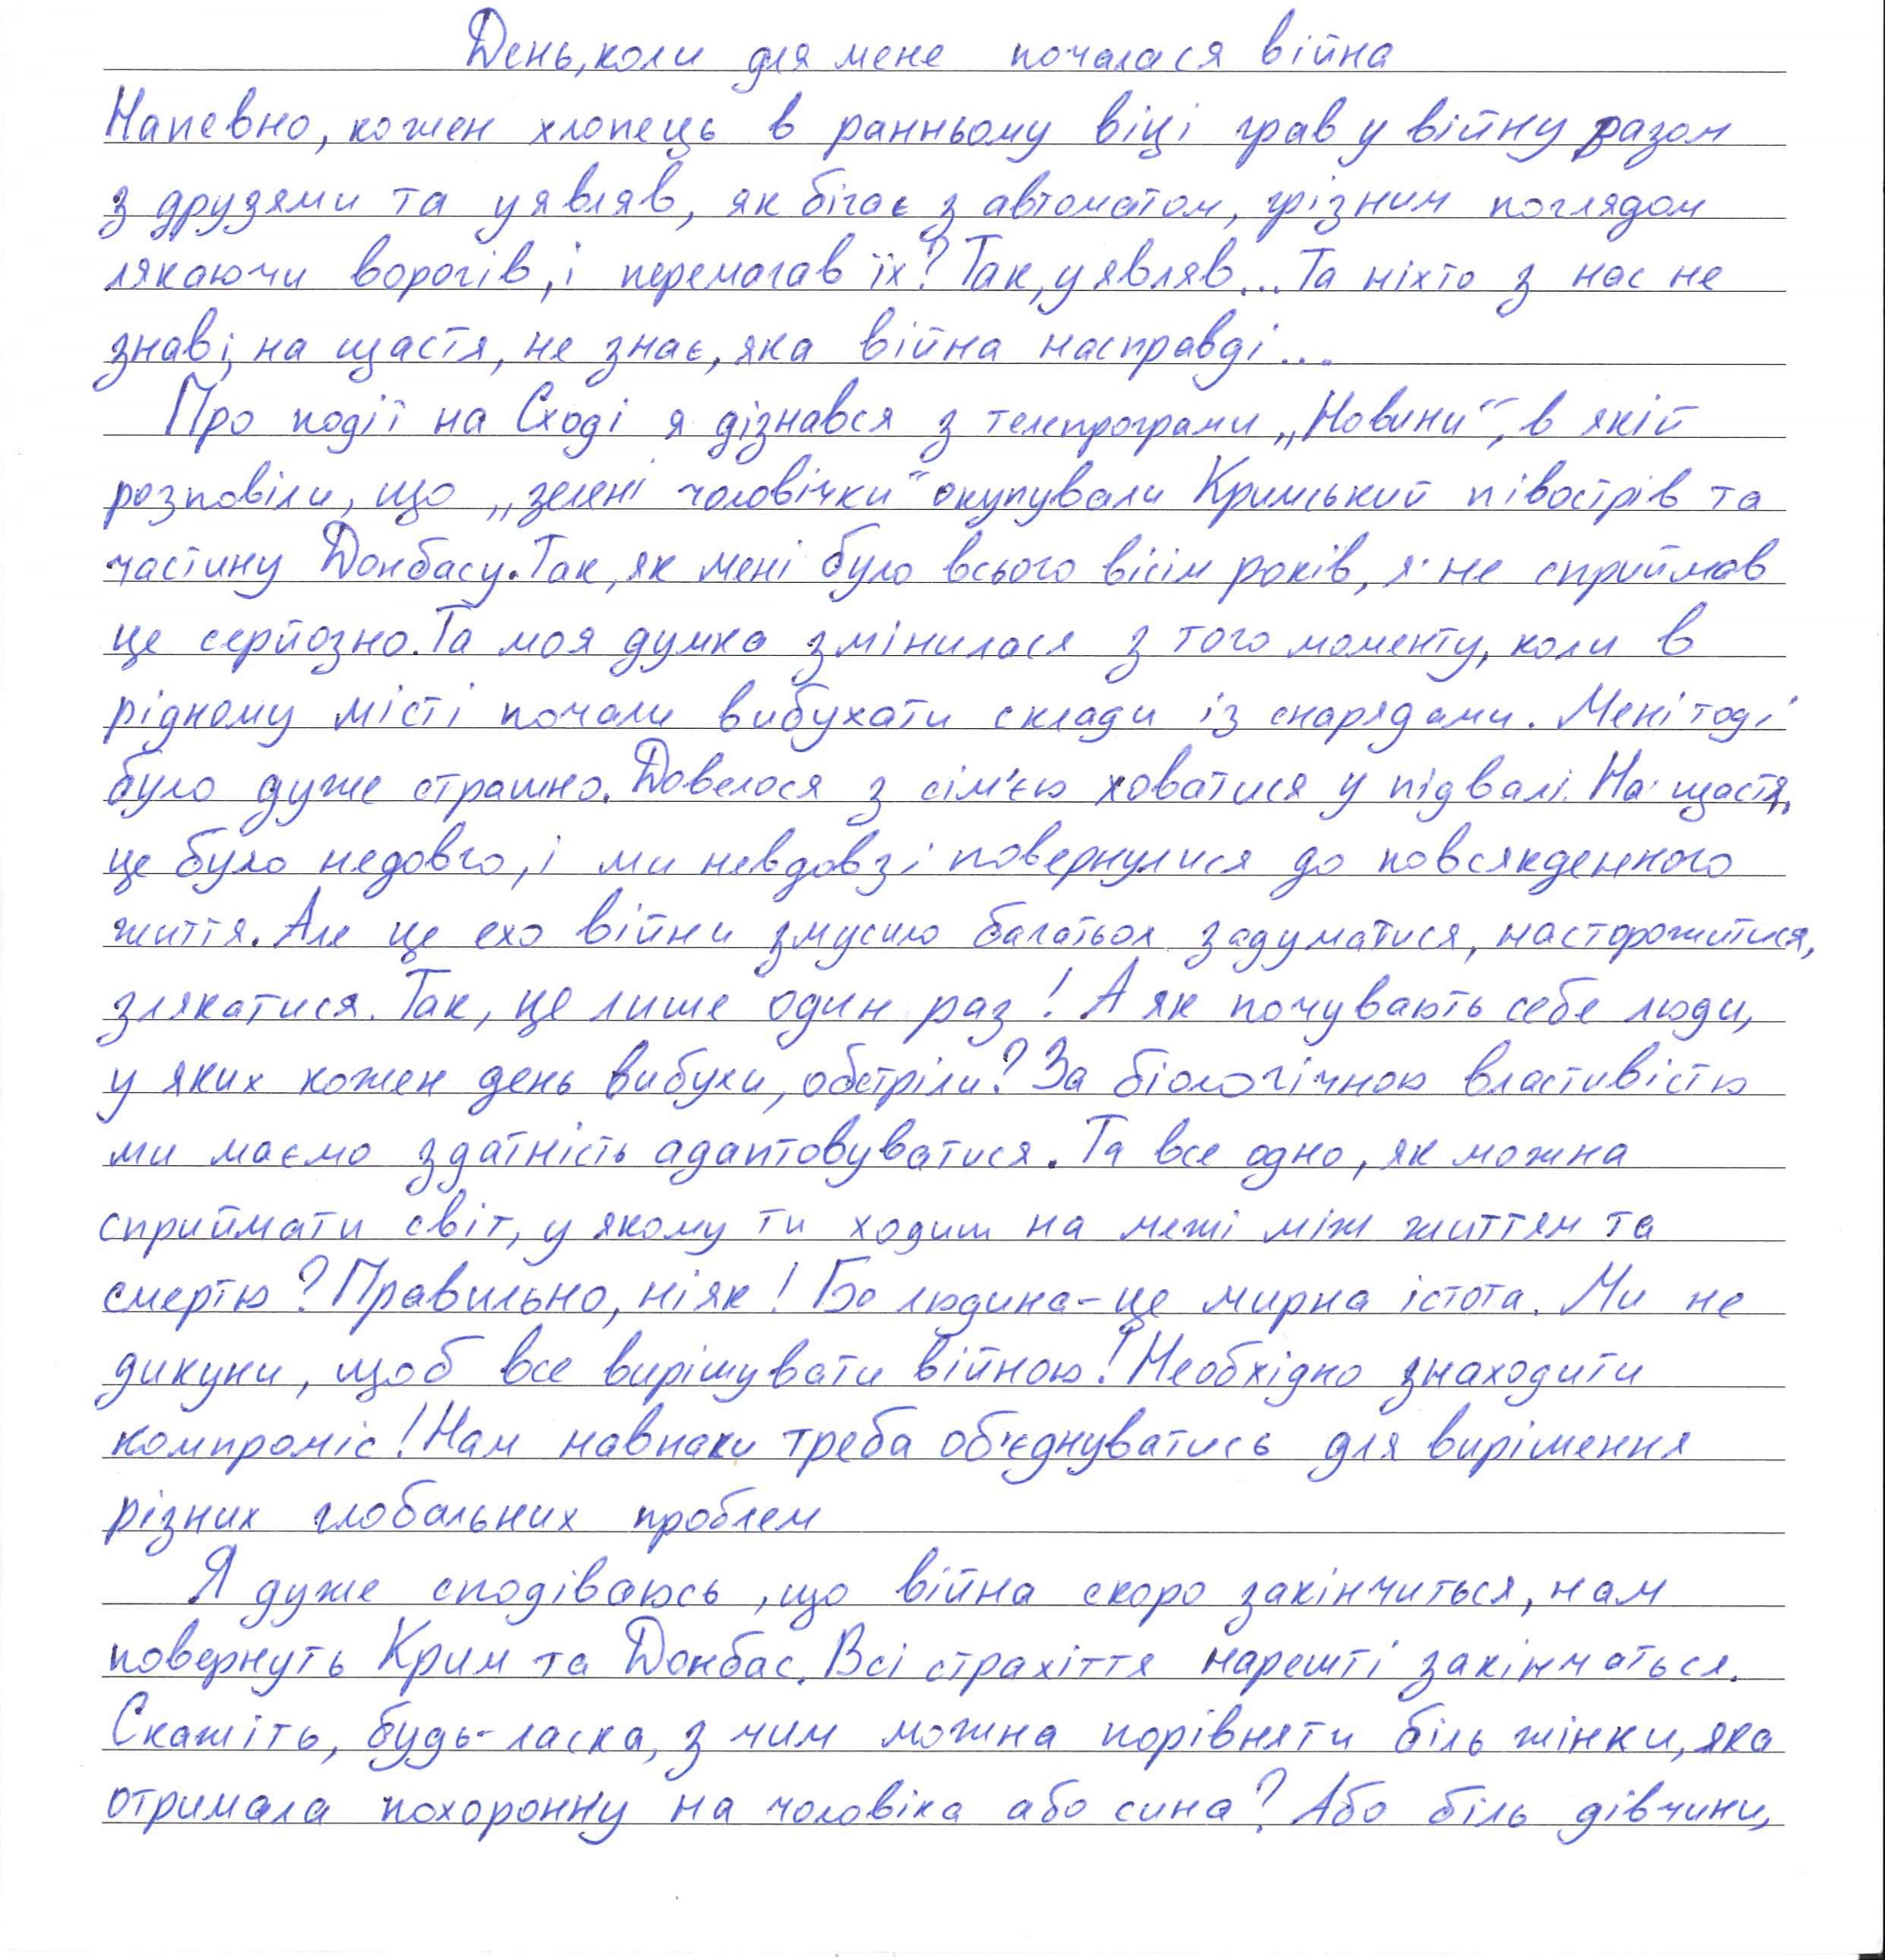 День, коли для мене почалася війна
Напевно, кожен хлопець в ранньому віці грав у війну разом
з друзями та уявляв, як бігає з автоматом, грізним поглядом
лякаючи ворогів, і перемагав їх? Так, уявляв... Та ніхто з нас не
знав і, на щастя, не знає, яка війна насправді....
Про події на Сході я дізнався з телепрограми „Новини“, в якій
розповіли, що „зелені чоловічки“ окупували Кримський півострів та
частину Донбасу. Так, як мені було всього вісім років, я не сприймав
це серйозно. Та моя думка змінилася з того моменту, коли в
рідному місті почали вибухати склади із снарядами. Мені тоді
було дуже страшно. Довелося з сім'єю ховатися у підвалі. На щастя,
це було недовго, і ми невдовзі повернулися до повсякденного
життя. Але це ехо війни змусило багатьох задуматися, насторожитися,
злякатися. Так, це лише один раз! А як почувають себе люди,
у яких кожен день вибухи, обстріли? За біологічною властивістю
ми маємо здатність адаптовуватися. Та все одно, як можна
сприймати світ, у якому ти ходиш на межі між життям та
смертю? Правильно, ніяк! Бо людина - це мирна істота. Ми не
дикуни, щоб все вирішувати війною! Необхідно знаходити
компроміс! Нам навпаки треба об'єднуватись для вирішення
різних глобальних проблем
Я дуже сподіваюсь, що війна скоро закінчиться, нам
повернуть Крим та Донбас. Всі страхіття нарешті закінчаться.
Скажіть, будь-ласка, з чим можна порівняти біль жінки, яка
отримала похоронну на чоловіка або сина? Або біль дівчини,